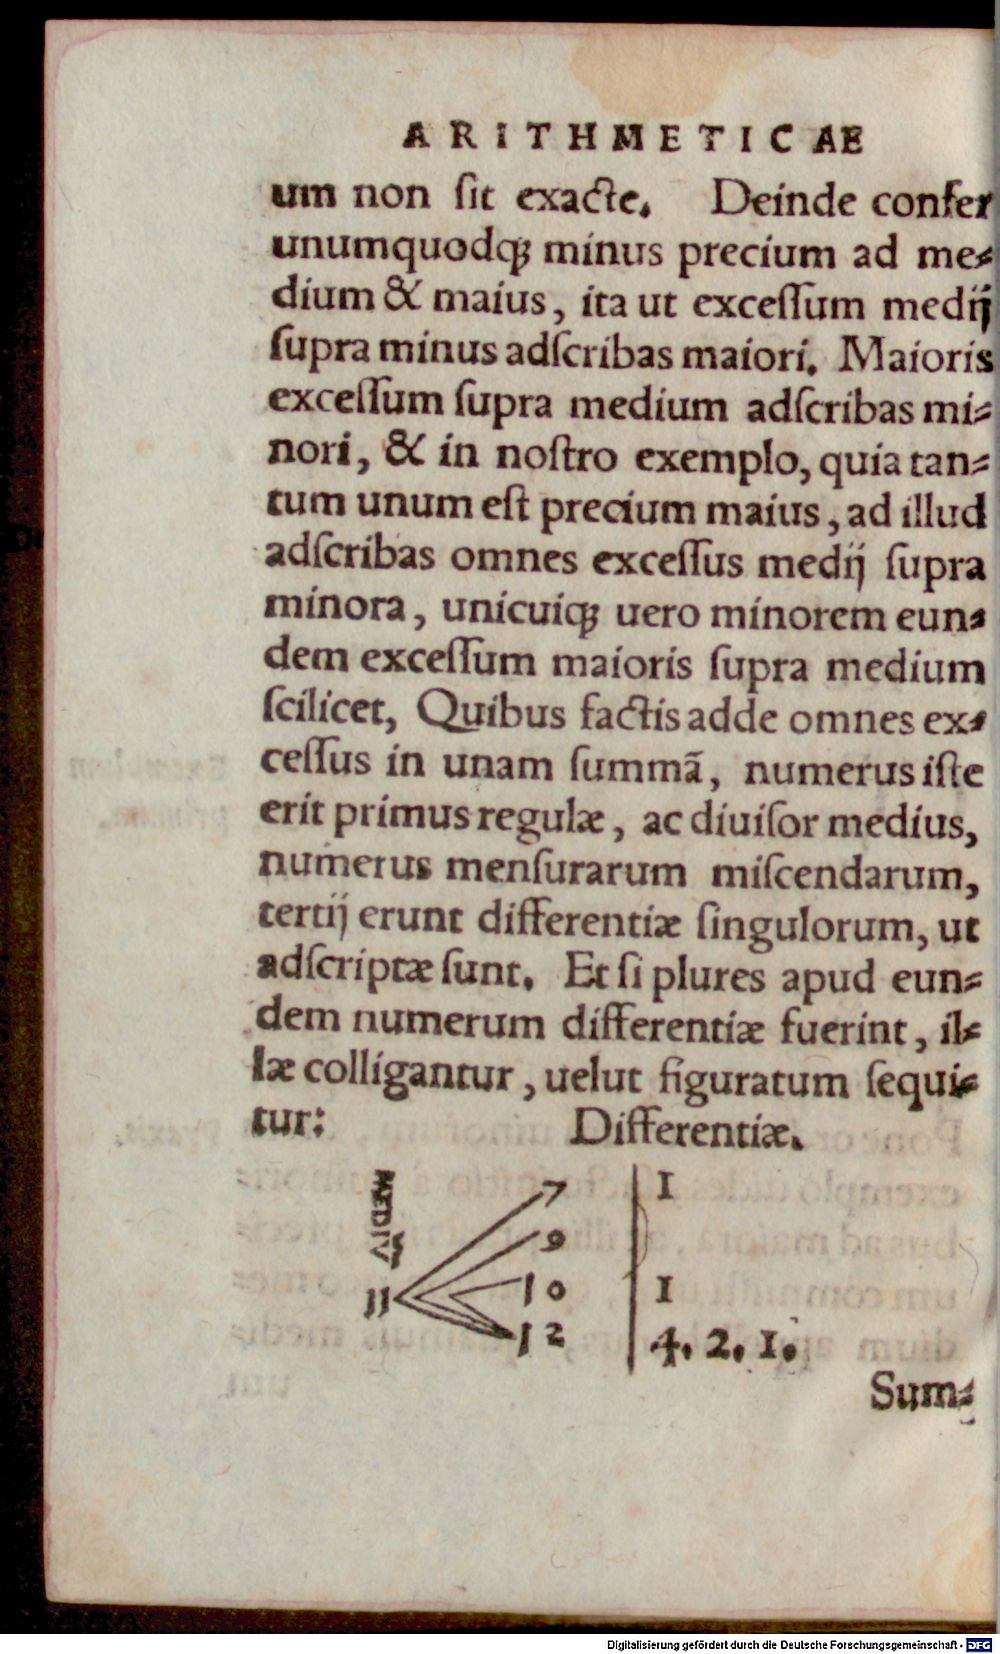 ARITHMETICAE
um non ſit exacte. Deinde confer
unumquodq; minus precium ad me⸗
dium & maius, ita ut exceſſum medij
ſupra minus adſcribas maiori. Maioris
exceſſum ſupra medium adſcribas mi⸗
nori, & in noſtro exemplo, quia tan⸗
tum unum eſt precium maius, ad illud
adſcribas omnes exceſſus medij ſupra
minora, unicuiq; uero minorem eun⸗
dem exceſſum maioris ſupra medium
ſcilicet, Quibus factis adde omnes ex⸗
ceſſus in unam ſummã, numerus iſte
erit primus regulæ, ac diuiſor medius,
numerus menſurarum miſcendarum,
tertij erunt differentiæ ſingulorum, ut
adſcriptæ ſunt. Et ſi plures apud eun⸗
dem numerum differentiæ fuerint, il⸗
læ colligantur, uelut figuratum ſequi⸗
tur: Differentiæ.
7 1
MEDIV 9
11 10 1
12 4. 2. 1.
Sum⸗
Digitalisierung gefördert durch die Deutsche Forschungsgemeinschaft - DFG